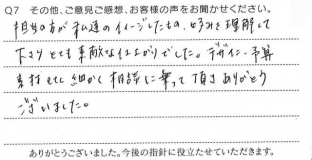 Q7 その他、ご意見ご感想、お客様の声をお聞かせください。
担当の方が私達のイメージしたもの、好みを理解して
下さりとても素敵な仕上がりでした。デザイン・予算
素材etc細かく相談に乗って頂きありがとう
ございました。
ありがとうございました。今後の指針に役立たせていただきます。